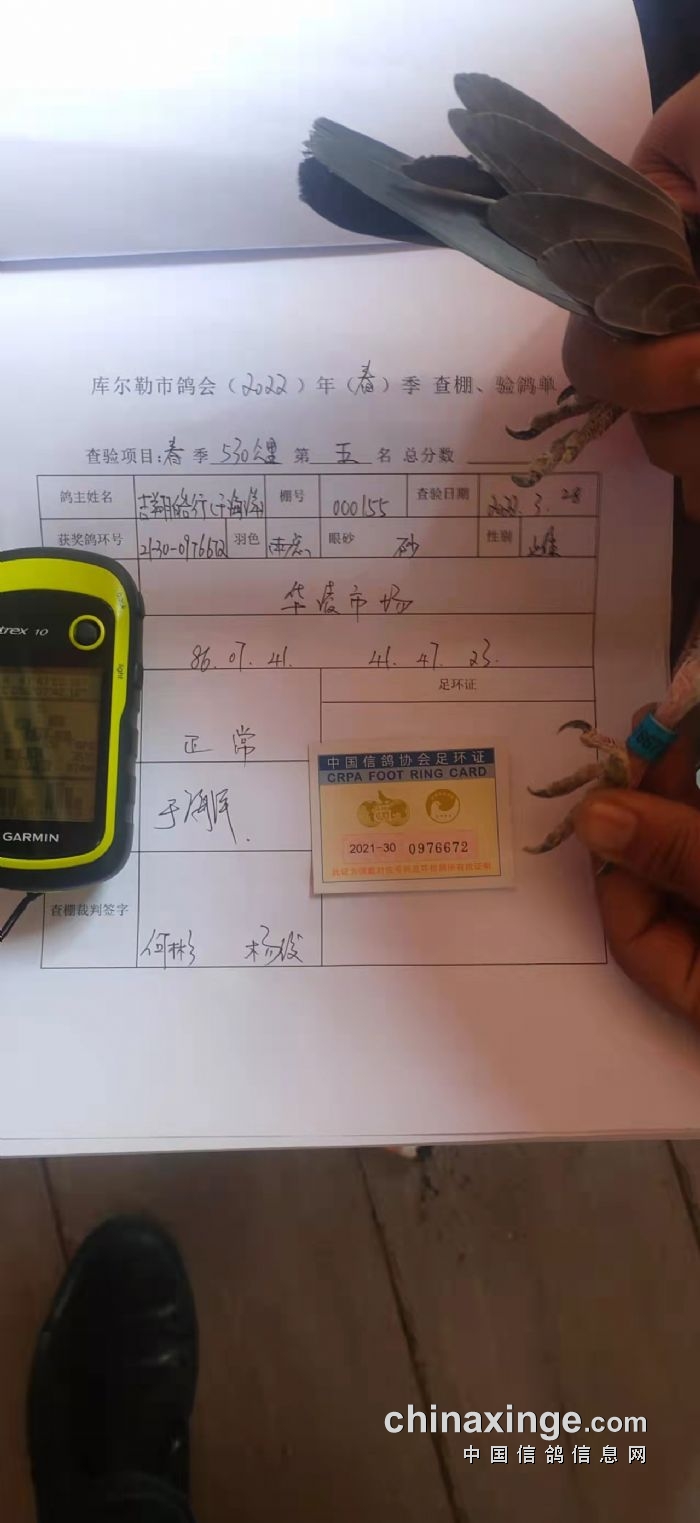 库尔勒市鸽会（2022）年（春）季 查棚、验鸽单
查验项目:春 季 530公里 第 五 名 总分数
鸽主姓名 棚号 000155 查验日期 2022.3.28
获奖鸽环号 2130-0976672 羽色 眼砂 砂 性别 雄
华凌市场
86.07.41. 41.47.23.
足环证
正常
etrex 10
light
GARMIN
中国信鸽协会足环证
CRPA FOOT RING CARD
2021-30 0976672
查棚裁判签字
何彬 杨俊
chinaxinge.com
中国信鸽信息网